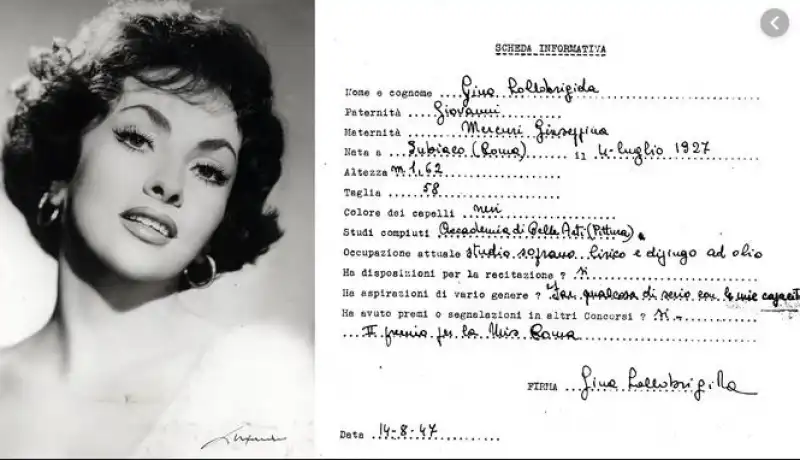 SCHEDA INFORMATIVA
Nome e cognome ....Gina Lollobrigida
Paternità ....Giovanni
Maternità ........Mercuri Giuseppina
Nata a ....Subiaco (Roma)........ il 4 luglio 1927
Altezza m.1,62
Taglia ......58
Colore dei capelli ....neri
Studi compiuti Accademia di Belle Arti (Pittura).
Occupazione attuale studio soprano lirico e dipingo ad olio
Ha disposizioni per la recitazione ? si
Ha aspirazioni di vario genere ? Far qualcosa di serio con le mie capacit
Ha avuto premi o segnalazioni in altri Concorsi ? si -
II premio per la Miss Roma
FIRMA ...Gina Lollobrigida
Data .14-8-47